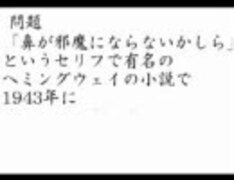 問題
「鼻が邪魔にならないかしら」
というセリフで有名の
ヘミングウェイの小説で
1943年に